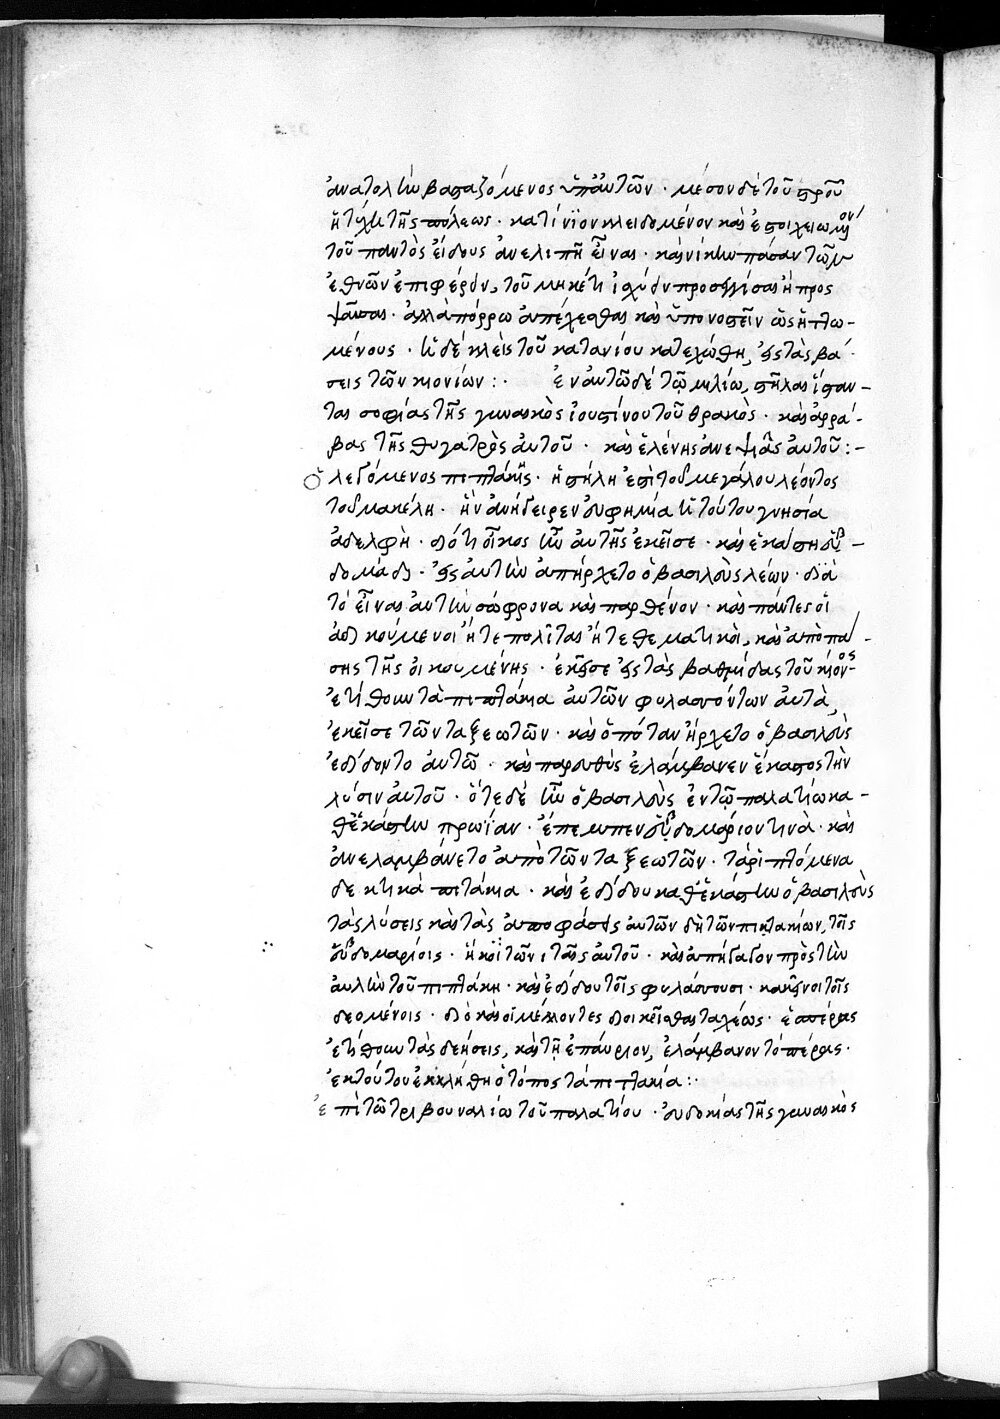 ἀνατολὴν βασταζόμενος ὑπ' αὐτῶν · μέσον δὲ τοῦ σταυροῦ
ἡ τύχη τῆς πόλεως · κατίνιον κλειδωμένον καὶ ἐστοιχειωμένον
τοῦ παντὸς εἴδους ἀνελιπῆ εἶναι · καὶ νίκην πάσαν τῶν
ἐθνῶν ἐπιφέρειν, τοῦ μηκέτι ἰσχύειν προσεγγίσαι ἢ προς
ψαῦσαι · ἀλλὰ πόρρω ἀπέχεσθαι καὶ ὑπονοστεῖν ὡς ἡττω-
μένους · ἡ δὲ κλεὶς τοῦ κατανίου κατεχώσθη εἰς τὰς βά-
σεις τῶν κιονίων :· ἐν αὐτῶ δὲ τῷ μιλίω, στῆλαι ἵσταν-
ται σοφίας τῆς γυναικὸς ἰουστίνου τοῦ θρακὸς · καὶ ἀρρα-
βας τῆς θυγατρὸς αὐτοῦ · καὶ ἑλένης ἀνεψιᾶς αὐτοῦ :-
ὁ λεγόμενος πιττάκης · ἡ στήλη ἐστὶ τοῦ μεγάλου λέοντος
τοῦ μακέλη · ἣν ἀνήγειρεν εὐφημία ἡ τούτου γνησία
ἀδελφὴ · διότι οἶκος ἦν αὐτῆς ἐκεῖσε · καὶ ἑκάστη ἑβ-
δομάδι · εἰς αὐτὴν ἀπήρχετο ὁ βασιλεὺς λέων · διὰ
τὸ εἶναι αὐτὴν σώφρονα καὶ παρθένον · καὶ πάντες οἱ
ἀδικούμενοι ἤτε πολῖται ἤτε θεματικοὶ, καὶ ἀπὸ πά-
σης τῆς οἰκουμένης · ἐκεῖσε εἰς τὰς βαθμίδας τοῦ κίονος
ἐτίθουν τὰ πιττάκια αὐτῶν φυλασσόντων αὐτὰ,
ἐκεῖσε τῶν ταξεωτῶν · καὶ ὁπόταν ἤρχετο ὁ βασιλεὺς
ἐδίδοντο αὐτῶ · καὶ παρευθὺς ἐλάμβανεν ἕκαστος τὴν
λύσιν αὐτοῦ · ὅτε δὲ ἦν ὁ βασιλεὺς ἐν τῷ παλατίω κα-
θεκάστην πρωΐαν · ἔπεμπεν εὐδομάριον τινὰ · καὶ
ἀνελαμβάνετο ἀπὸ τῶν ταξεωτῶν · τὰ ῥιπτόμενα
δεκτικὰ πιττάκια · καὶ ἐδίδου καθεκάστην ὁ βασιλεὺς
τὰς λύσεις καὶ τὰς ἀποφάσεις αὐτῶν δὴ τῶν πιττακίων, τοῖς
εὐδομαρίοις · ἢ κοϊτωνίταις αὐτοῦ · καὶ ἀπήγαγον πρὸς τὴν
αὐλὴν τοῦ πιττάκη · καὶ ἐδίδου τοῖς φυλάσσουσι · κακεῖνοι τοῖς
δεομένοις · διὸ καὶ οἱ μέλλοντες διοικεῖσθαι ταχέως · ἑσπέρας
ἐτίθουν τὰς δεήσεις, καὶ τῇ ἐπαύριον, ἐλάμβανον τὸ πέρας ·
ἐκ τούτου ἐκλήθη ὁ τόπος τὰ πιττακία :·
ἐπὶ τῶ τριβουναλίω τοῦ παλατίου · εὐδοκίας τῆς γυναικὸς